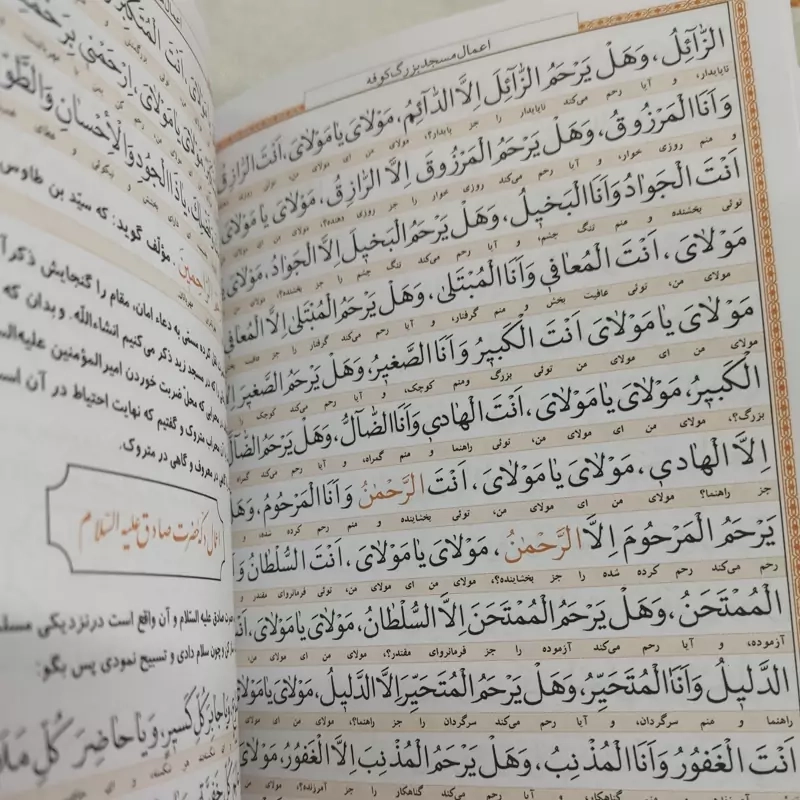 اعمال مسجد بزرگ کوفه
الزَّآئِلُ، وَهَلْ يَرْحَمُ الزَّآئِلَ اِلَّا الدَّآئِمُ، مَوْلاىَ يا مَوْلاىَ، اَنْتَ الرَّازِقُ
ناپایدار، و آیا رحم می‌کند ناپایدار را جز پایدار؟، مولای من ای مولای من، توئی روزی
وَاَنَا الْمَرْزُوقُ، وَهَلْ يَرْحَمُ الْمَرْزُوقَ اِلَّا الرَّازِقُ، مَوْلاىَ يا مَوْلاىَ
و منم روزی خوار، و آیا رحم می‌کند روزی خوار را جز روزی دهنده؟، مولای من ای مولای
اَنْتَ الْجَوادُ وَاَنَا الْبَخيلُ، وَهَلْ يَرْحَمُ الْبَخيلَ اِلَّا الْجَوادُ، مَوْلاىَ يا
توئی بخشنده و منم تنگ چشم، و آیا رحم می‌کند تنگ چشم را جز بخشنده؟، مولای من
مَوْلاىَ، اَنْتَ الْمُعافي وَاَنَا الْمُبْتَلىٰ، وَهَلْ يَرْحَمُ الْمُبْتَلىٰ اِلَّا الْمُعافي
مولای من، توئی عافیت بخش و منم گرفتار، و آیا رحم می‌کند گرفتار را جز عافیت بخش
مَوْلاىَ يا مَوْلاىَ اَنْتَ الْكَبيرُ وَاَنَا الصَّغيرُ، وَهَلْ يَرْحَمُ الصَّغيرَ اِلَّا
مولای من ای مولای من توئی بزرگ و منم کوچک، و آیا رحم می‌کند کوچک را
الْكَبيرُ، مَوْلاىَ يا مَوْلاىَ، اَنْتَ الْهادي وَاَنَا الضَّآلُّ، وَهَلْ يَرْحَمُ الضَّآلَّ
بزرگ؟، مولای من ای مولای من، توئی راهنما و منم گمراه، و آیا رحم می‌کند گمراه
اِلَّا الْهادي، مَوْلاىَ يا مَوْلاىَ، اَنْتَ الرَّحْمٰنُ وَاَنَا الْمَرْحُومُ، وَهَلْ
جز راهنما؟ مولای من ای مولای من، توئی بخشاینده و منم رحم کرده شده، و
يَرْحَمُ الْمَرْحُومَ اِلَّا الرَّحْمٰنُ، مَوْلاىَ يا مَوْلاىَ، اَنْتَ السُّلْطانُ وَاَ
رحم می‌کند رحم کرده شده را جز بخشاینده؟، مولای من ای مولای من، توئی فرمانروای مقتدر و
الْمُمْتَحَنُ، وَهَلْ يَرْحَمُ الْمُمْتَحَنَ اِلَّا السُّلْطانُ، مَوْلاىَ يا مَوْلاىَ، اَنْتَ
آزموده، و آیا رحم می‌کند آزموده را جز فرمانروای مقتدر؟، مولای من ای مولای من،
الدَّليلُ وَاَنَا الْمُتَحَيِّرُ، وَهَلْ يَرْحَمُ الْمُتَحَيِّرَ اِلَّا الدَّليلُ، مَوْلاىَ يا مَوْلاىَ
راهنما و منم سرگردان، و آیا رحم می‌کند سرگردان را جز راهنما؟، مولای من ای مولای
اَنْتَ الْغَفُورُ وَاَنَا الْمُذْنِبُ، وَهَلْ يَرْحَمُ الْمُذْنِبَ اِلَّا الْغَفُورُ، مَوْلاىَ
آمرزنده و منم گناهکار، و آیا رحم می‌کند گناهکار را جز آمرزنده؟، مولای
مَوْلاىَ، اَنْتَ الْمُتَكَبِّرُ
مَوْلاىَ يا مَوْلاىَ، اِرْحَمْنى بِرَحْمَتِكَ
يا ذَا الْجُودِ وَالْاِحْسانِ وَالطَّوْلِ
مؤلف گوید: که سیّد بن طاوس
نقل کرده مسمی به دعاء امان، مقام را گنجایش ذکر آن
که در مسجد زید ذکر می‌کنیم انشاءالله. و بدان که
محل ضربت خوردن امیرالمؤمنین علیه‌السلام
متروک و گفتیم که نهایت احتیاط در آن است
در معروف و گاهی در متروک.
اعمال دکه حضرت صادق علیه السلام
حضرت صادق علیه السّلام و آن واقع است در نزدیکی مسلم
و چون سلام دادی و تسبیح نمودی پس بگو:
وَيا جابِرَ كُلِّ كَسيرٍ، وَيا حاضِرَ كُلِّ مَلَأٍ